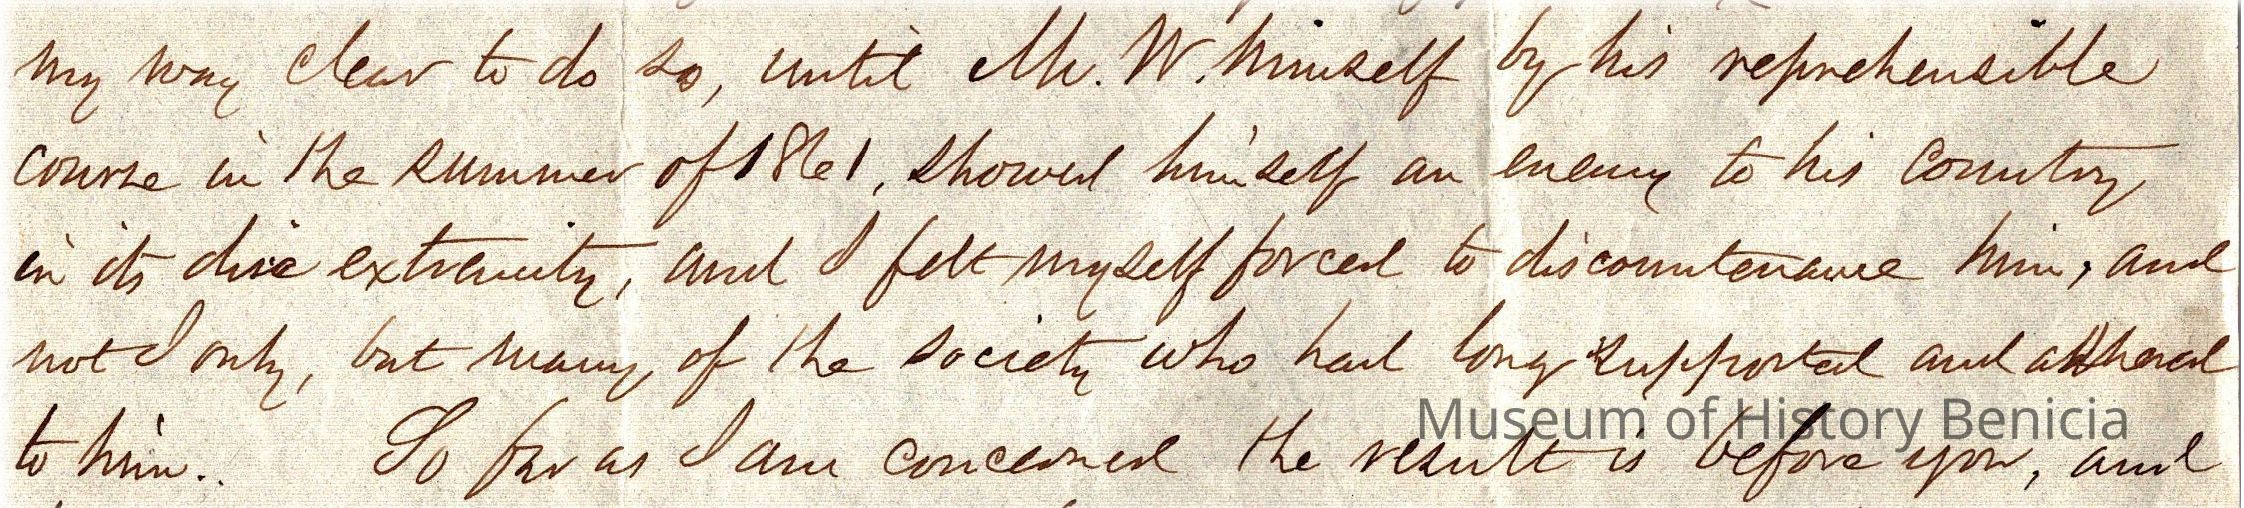 my way clear to do so, until Mr. W. himself by his reprehensible
course in the summer of 1861, showed himself an enemy to his country
in its dire extremity, and I felt myself forced to discountenance him, and
not I only, but many of the society who had long supported and adhered
to him. So far as I am concerned the result is before you, and
Museum of History Benicia